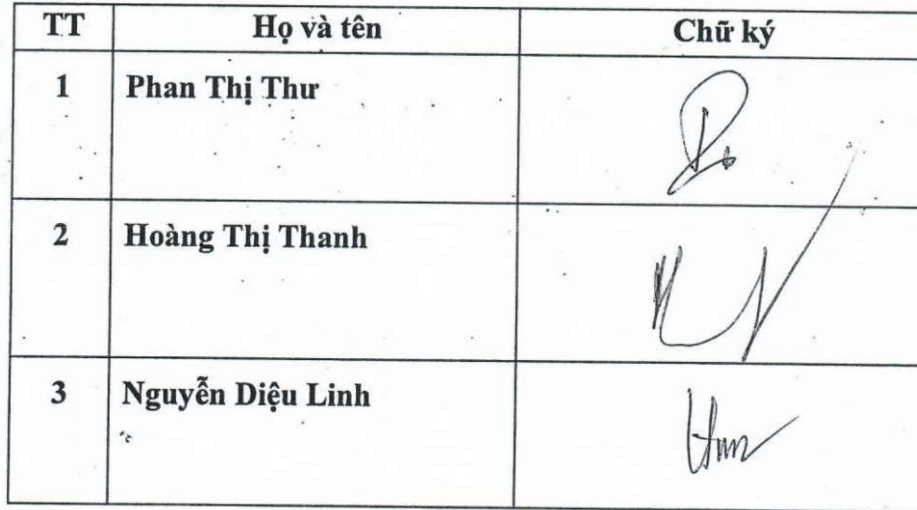 TT Họ và tên Chữ ký
1 Phan Thị Thư
2 Hoàng Thị Thanh
3 Nguyễn Diệu Linh